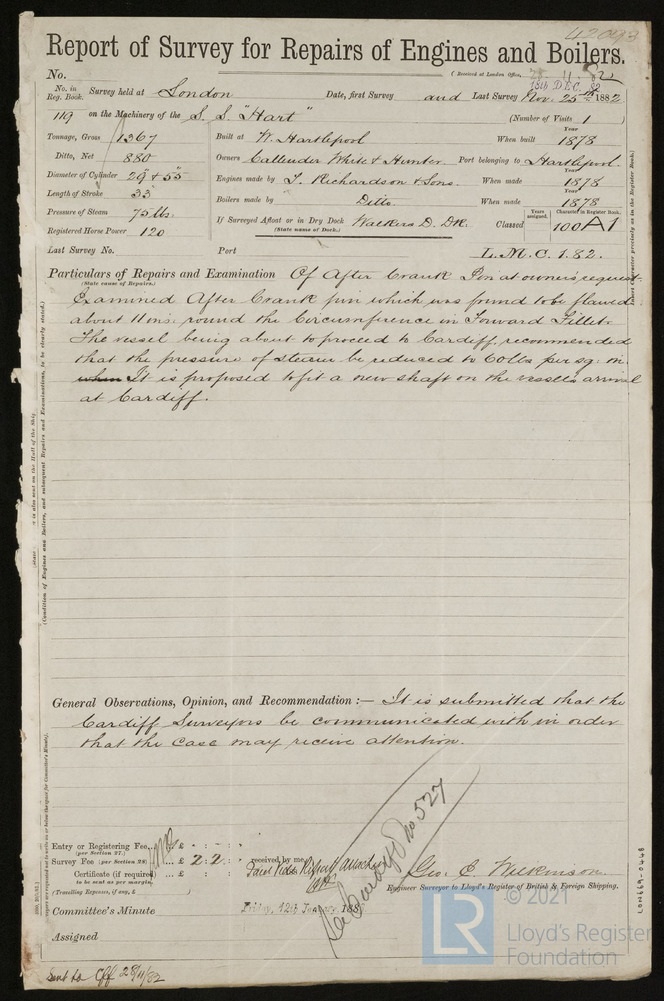 42093
Report of Survey for Repairs of Engines and Boilers.
No. (Received at London Office,
18th DEC. 82
No. in Reg. Book. Survey held at London Date, first Survey and Last Survey Nov. 25th 1882
119 on the Machinery of the S. S. "Hart" (Number of Visits 1 )
Tonnage, Gross 1367 Built at W. Hartlepool When built Year 1878
Ditto, Net 880 Owners Callender White & Hunter Port belonging to Hartlepool
Diameter of Cylinder 29" & 55" Engines made by T. Richardson & Sons. When made Year 1878
Length of Stroke 33" Boilers made by Ditto. When made Year 1878
Pressure of Steam 75 lbs. If Surveyed Afloat or in Dry Dock Walkers D. Dk. Classed Years assigned. Character in Register Book. 100 A1
(State name of Dock.)
Registered Horse Power 120
Last Survey No. Port L.M.C. 1.82.
Particulars of Repairs and Examination Of After Crank Pin at owners request.
(State cause of Repairs.)
Examined After Crank pin which was found to be flawed
about 11 ins. round the Circumference in Forward Fillet.
The vessel being about to proceed to Cardiff, recommended
that the pressure of steam be reduced to 60lbs per sq. in.
when It is proposed to fit a new shaft on the vessels arrival
at Cardiff.
General Observations, Opinion, and Recommendation :— It is submitted that the
Cardiff Surveyors be communicated with in order
that the case may receive attention.
See Cardiff Rpt No. 527
Entry or Registering Fee... £ : :
(per Section 27.)
Survey Fee (per Section 28) ... £ 2 : 2 : received by me,
Certificate (if required) ... £ : :
to be sent as per margin.
(Travelling Expenses, if any, £ )
Geo. C. Wilkinson
Engineer Surveyor to Lloyd's Register of British & Foreign Shipping.
Committee's Minute Friday, 12th January 188
Assigned
Sent to Cff 28/11/82
(Condition of Engines and Boilers, and subsequent Repairs and Examinations, to be clearly stated.)
LON669-0468
© 2021
LR
Lloyd's Register
Foundation